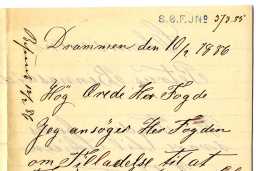 S.B.F. J№ 373.85
Drammen den 10/2 1886
Høg Ørede Her Fogde
Jeg ansøger Her Fogden
om Tilladelse til at